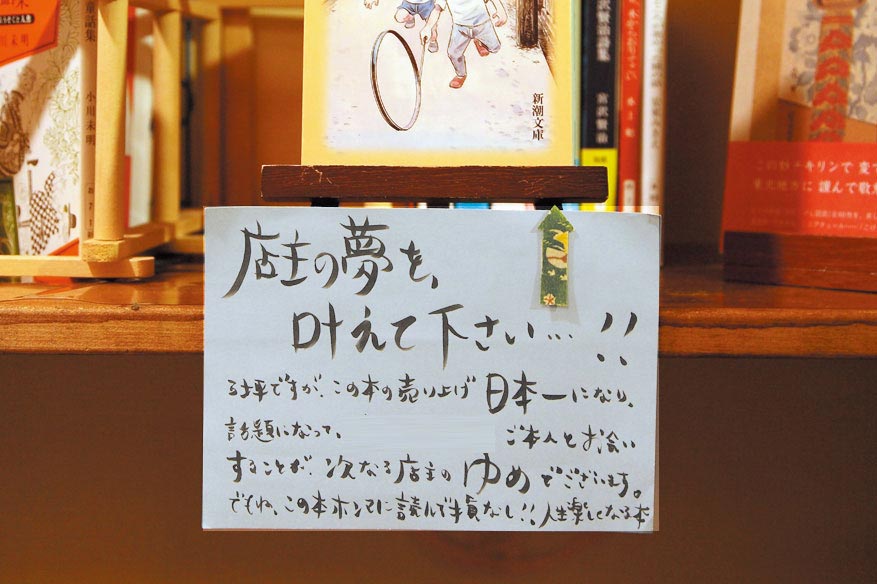 童話集
小川未明
新潮文庫
宮沢賢治詩集
宮沢賢治
店主の夢を、
叶えて下さい…!!
5坪ですが、この本の売り上げ 日本一になり、
話題になって、 ご本人とお会い
することが、次なる店主の ゆめ でございます。
でもね、この本ホンマに読んで損なし!!人生楽しくなる本